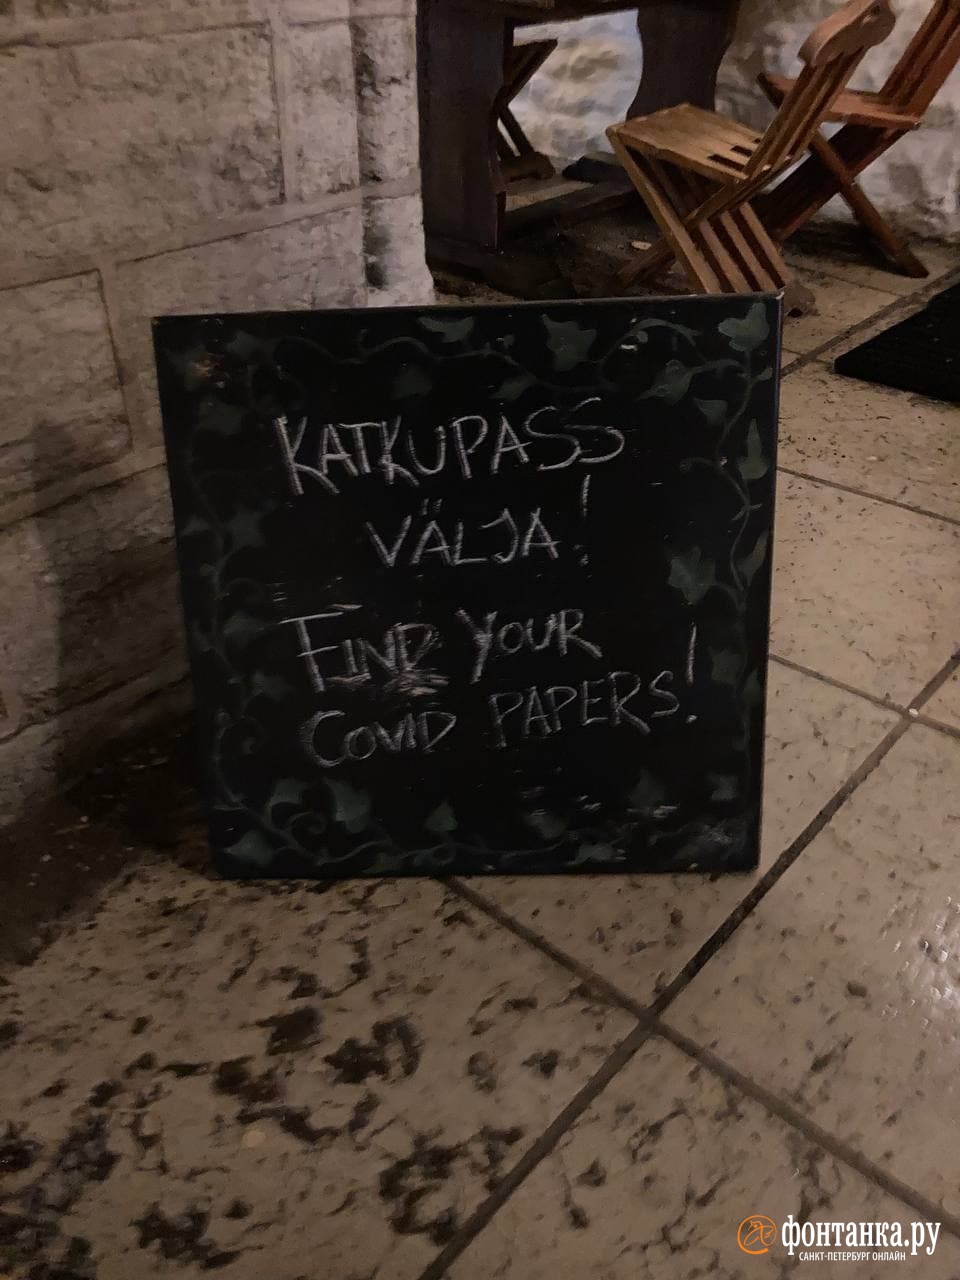 KATKUPASS
VÄLJA!
FIND YOUR
COVID PAPERS!
фонтанка.ру
САНКТ-ПЕТЕРБУРГ ОНЛАЙН